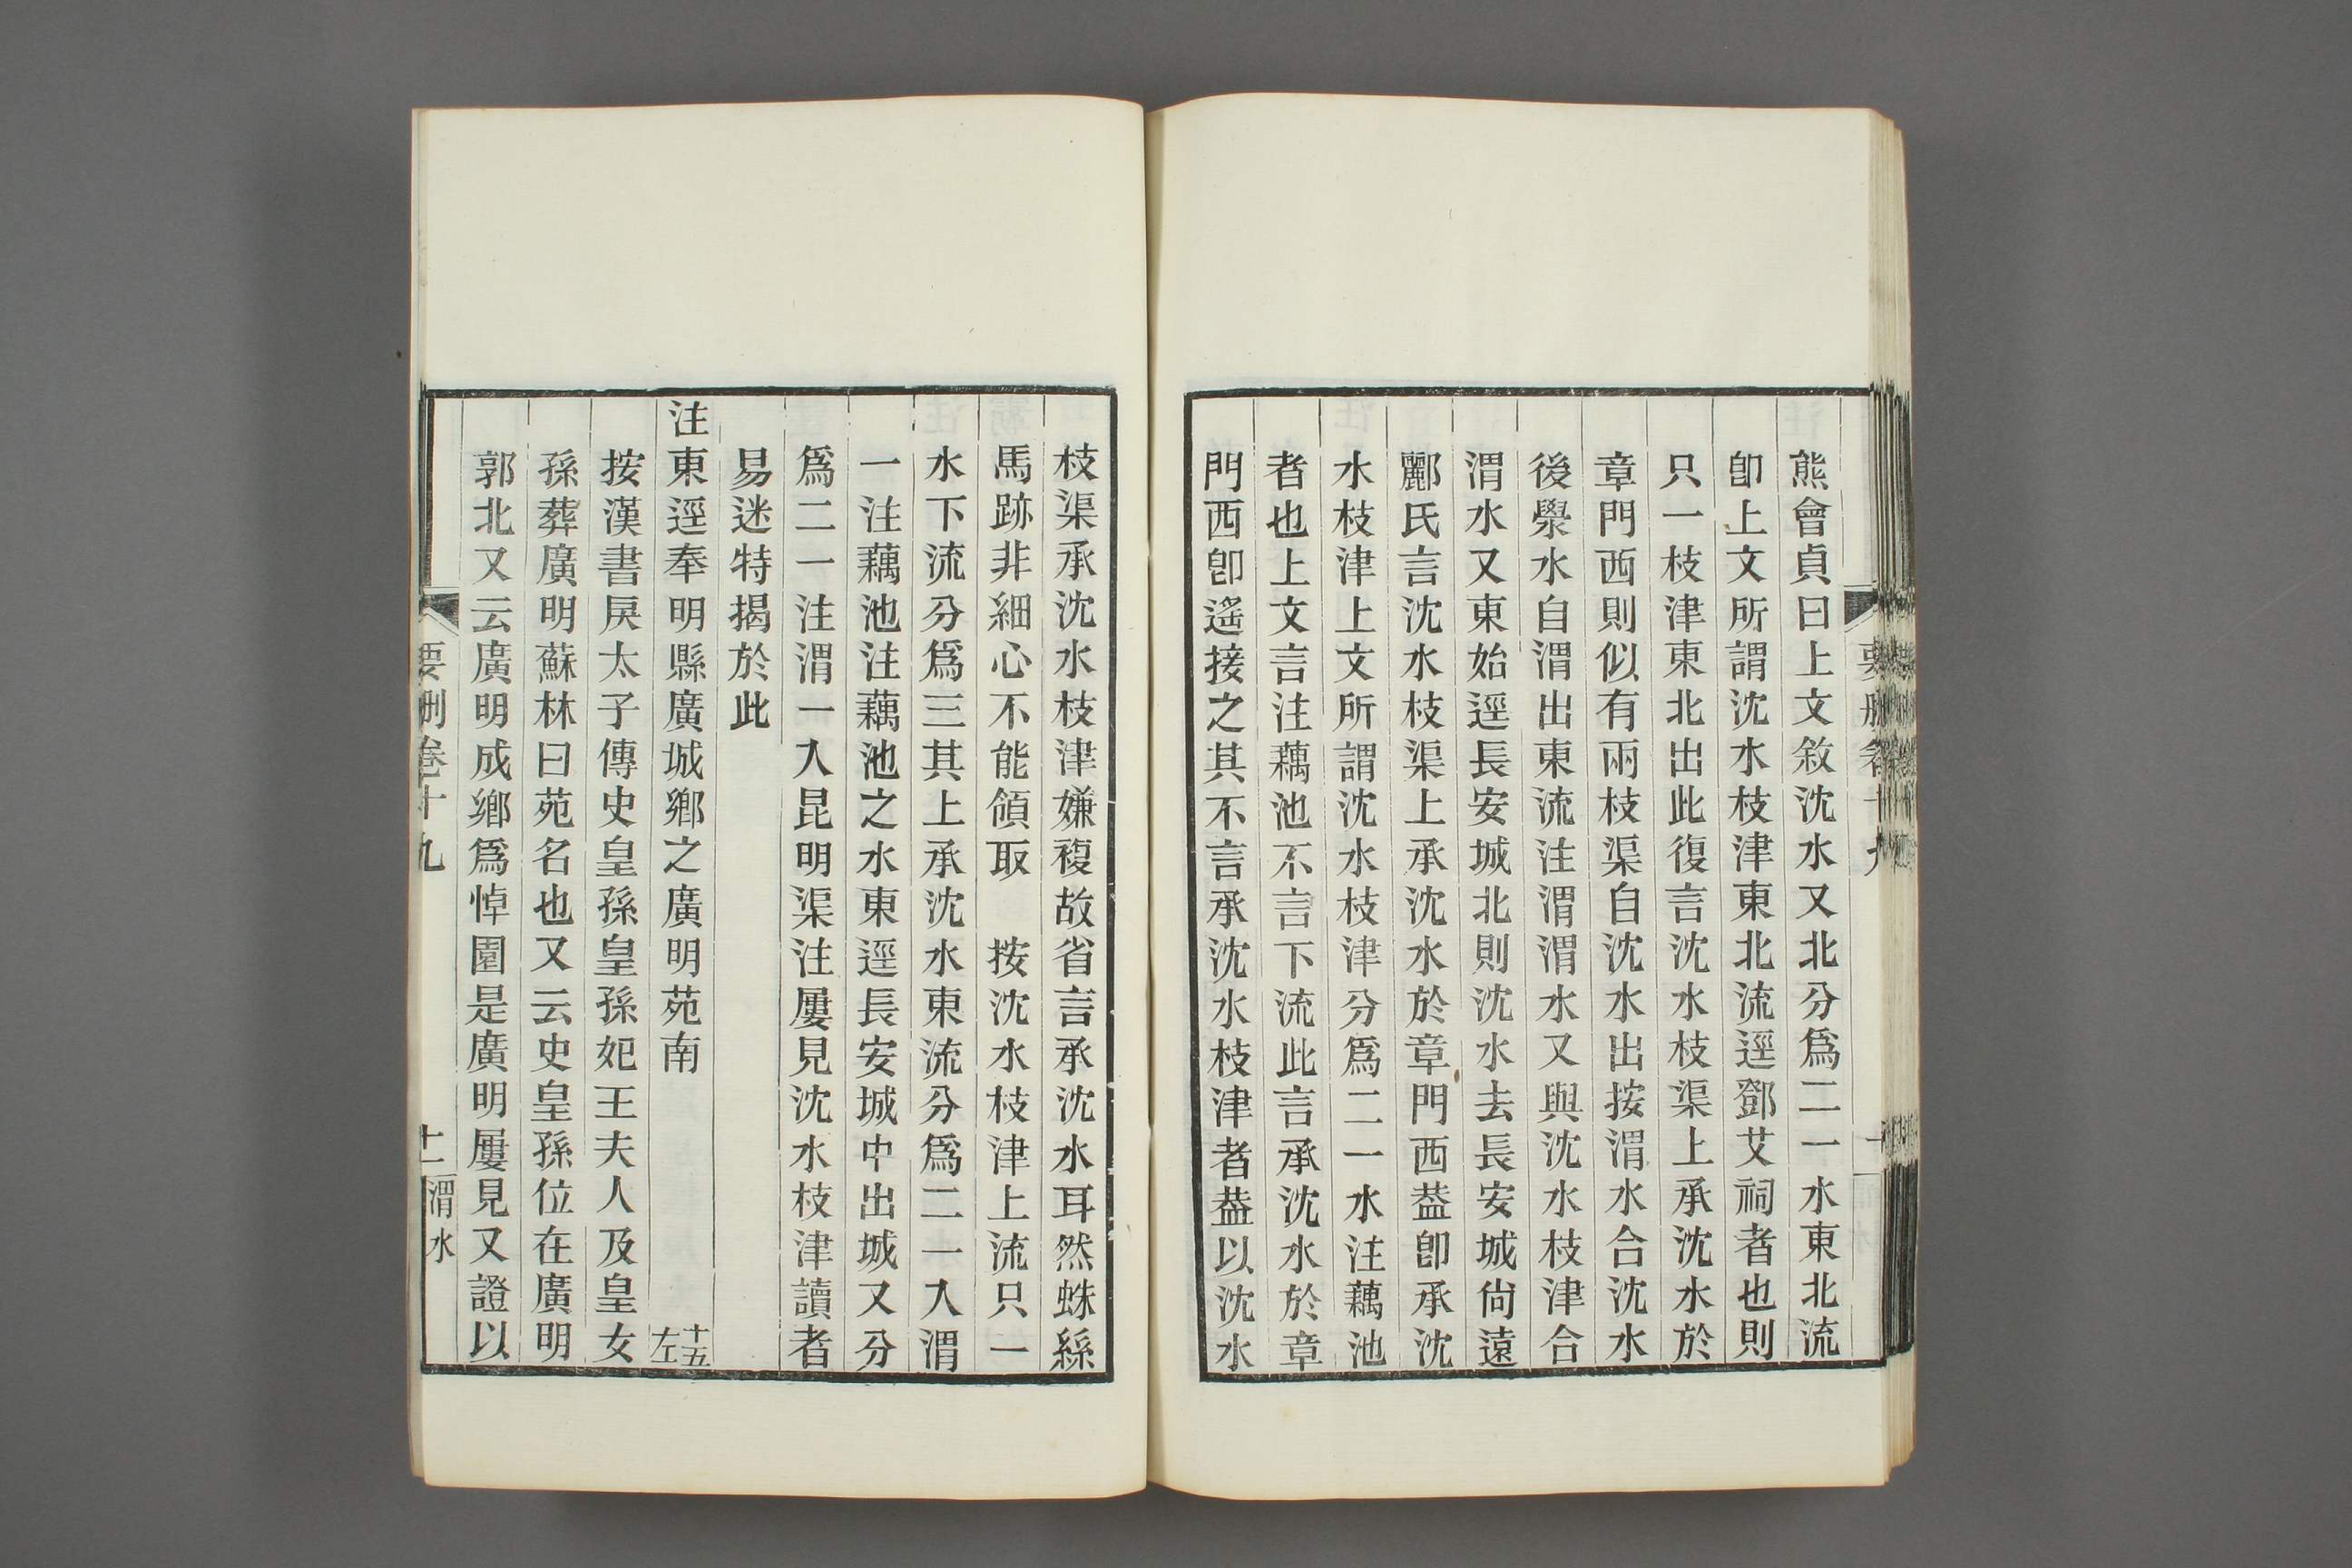 熊會貞曰上文敘沈水又北分爲二一水東北流
卽上文所謂沈水枝津東北流逕鄧艾祠者也則
只一枝津東北出此復言沈水枝渠上承沈水於
章門西則似有兩枝渠自沈水出按渭水合沈水
後㶅水自渭出東流注渭渭水又與沈水枝津合
渭水又東始逕長安城北則沈水去長安城尙遠
酈氏言沈水枝渠上承沈水於章門西葢卽承沈
水枝津上文所謂沈水枝津分爲二一水注藕池
者也上文言注藕池不言下流此言承沈水於章
門西卽遙接之其不言承沈水枝津者葢以沈水
枝渠承沈水枝津嫌複故省言承沈水耳然蛛絲
馬跡非細心不能領取　按沈水枝津上流只一
水下流分爲三其上承沈水東流分爲二一入渭
一注藕池注藕池之水東逕長安城中出城又分
爲二一注渭一入昆明渠注屢見沈水枝津讀者
易迷特揭於此
注東逕奉明縣廣城鄉之廣明苑南
十五
左
按漢書戾太子傳史皇孫皇孫妃王夫人及皇女
孫葬廣明蘇林曰苑名也又云史皇孫位在廣明
郭北又云廣明成鄉爲悼園是廣明屢見又證以
要刪卷十九
十一
渭水